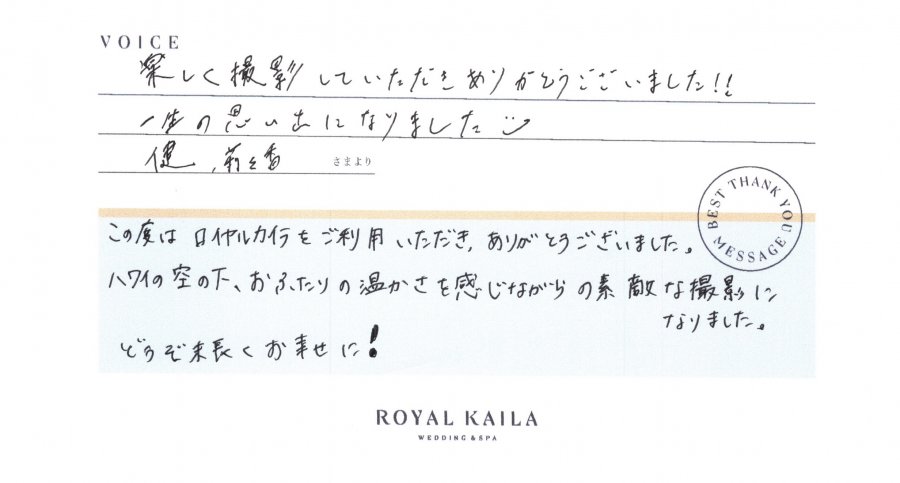 VOICE
楽しく撮影していただきありがとうございました!!
一生の思い出になりました
健、莉々香 さまより
BEST THANK YOU MESSAGE
この度はロイヤルカイラをご利用いただき、ありがとうございました。
ハワイの空の下、おふたりの温かさを感じながらの素敵な撮影に
なりました。
どうぞ末長くお幸せに!
ROYAL KAILA
WEDDING & SPA